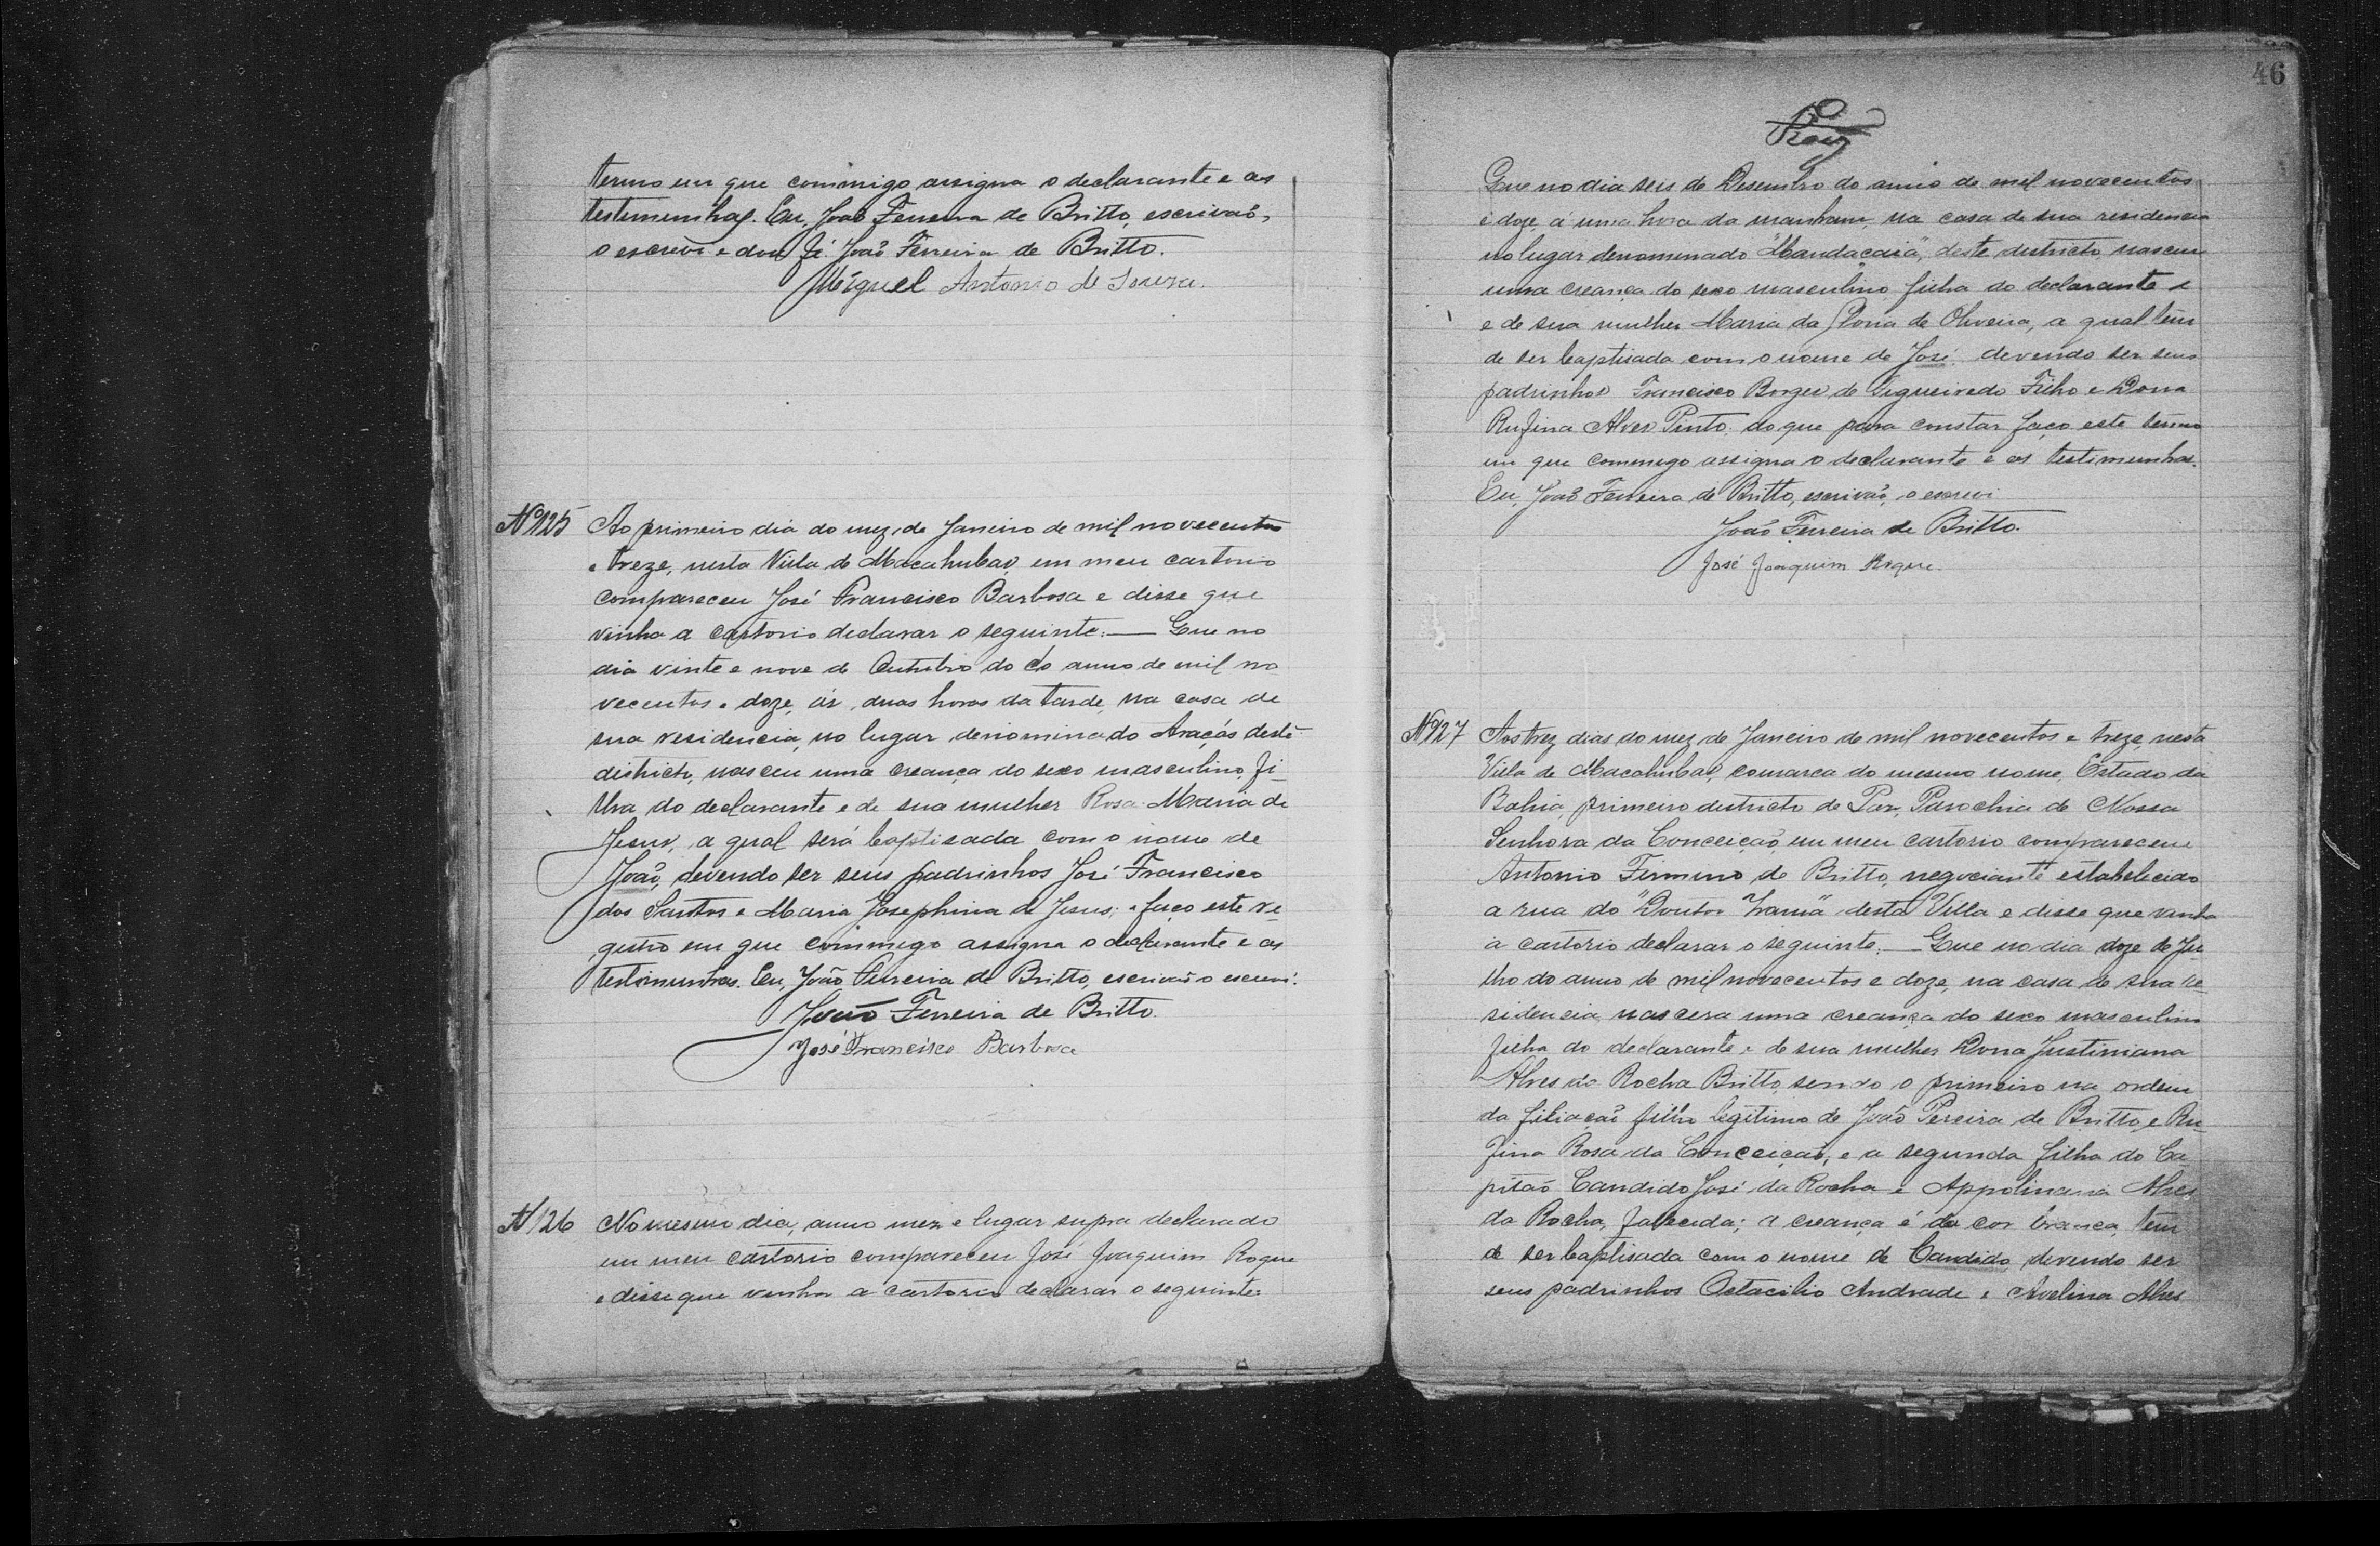 termo em que commigo assigna o declarante e as
testimunhas. Eu, João Ferreira de Britto, escrivão,
o escrevi e dou fé. João Ferreira de Britto.
Miguel Antonio de Souza.
Nº 125 Ao primeiro dia do mez de Janeiro de mil novecentos
e treze, nesta Villa de Macahubas, em meu cartorio
compareceu José Francisco Barbosa e disse que
vinha a cartorio declarar o seguinte: — Que no
dia vinte e nove de Outubro do do anno de mil no
vecentos e doze, ás duas horas da tarde, na casa de
sua residencia, no lugar denominado Araçás deste
districto, nasceu uma creança do sexo masculino, fi-
lha do declarante e de sua mulher Rosa Maria de
Jesus, a qual será baptisada com o nome de
João, devendo ser seus padrinhos José Francisco
dos Santos e Maria Josephina de Jesus; e faço este re
gistro em que commigo assigna o declarante e as
testimunhas. Eu, João Ferreira de Britto, escrivão o escrevi.
João Ferreira de Britto.
José Francisco Barbosa
N 126 No mesmo dia, anno mez e lugar supra declarado
em meu cartorio compareceu José Joaquim Roque
e disse que vinha a cartorio declarar o seguinte:
46
Que no dia seis de Desembro do anno de mil novecentos
e doze, á uma hora da manham, na casa de sua residencia
no lugar denominado "Mandaçaia", deste districto, nasceu
uma creança do sexo masculino, filha do declarante e
e de sua mulher Maria da Gloria de Oliveira, a qual tem
de ser baptisada com o nome de José devendo ser seus
padrinhos Francisco Borges de Figueiredo Filho e Dona
Rufina Alves Pinto, do que para constar faço este termo
em que commigo assigna o declarante e as testimunhas.
Eu, João Ferreira de Britto, escrivão, o escrevi
João Ferreira de Britto.
José Joaquim Roque.
Nº 127 Aos trez dias do mez de Janeiro de mil novecentos e treze, nesta
Villa de Macahubas, comarca do mesmo nome, Estado da
Bahia, primeiro districto de Paz, Parochia de Nossa
Senhora da Conceição, em meu cartorio compareceu
Antonio Firmino de Britto, negociante estabelecido
a rua do "Doutor Vianna" desta Villa e disse que vinha
a cartorio declarar o seguinte: — Que no dia doze de Ju-
lho do anno de mil novecentos e doze, na casa de sua re-
sidencia, nascera uma creança do sexo masculino
filha do declarante e de sua mulher Dona Justiniana
Alves da Rocha Britto, sendo o primeiro na ordem
da filiação filho legitimo de João Pereira de Britto e Ru-
fina Rosa da Conceição, e a segunda filha do Ca-
pitão Candido José da Rocha e Appolinaria Alves
da Rocha, fallecida; a creança é de cor branca, tem
de ser baptisada com o nome de Candido, devendo ser
seus padrinhos Octacilio Andrade e Avelina Alves